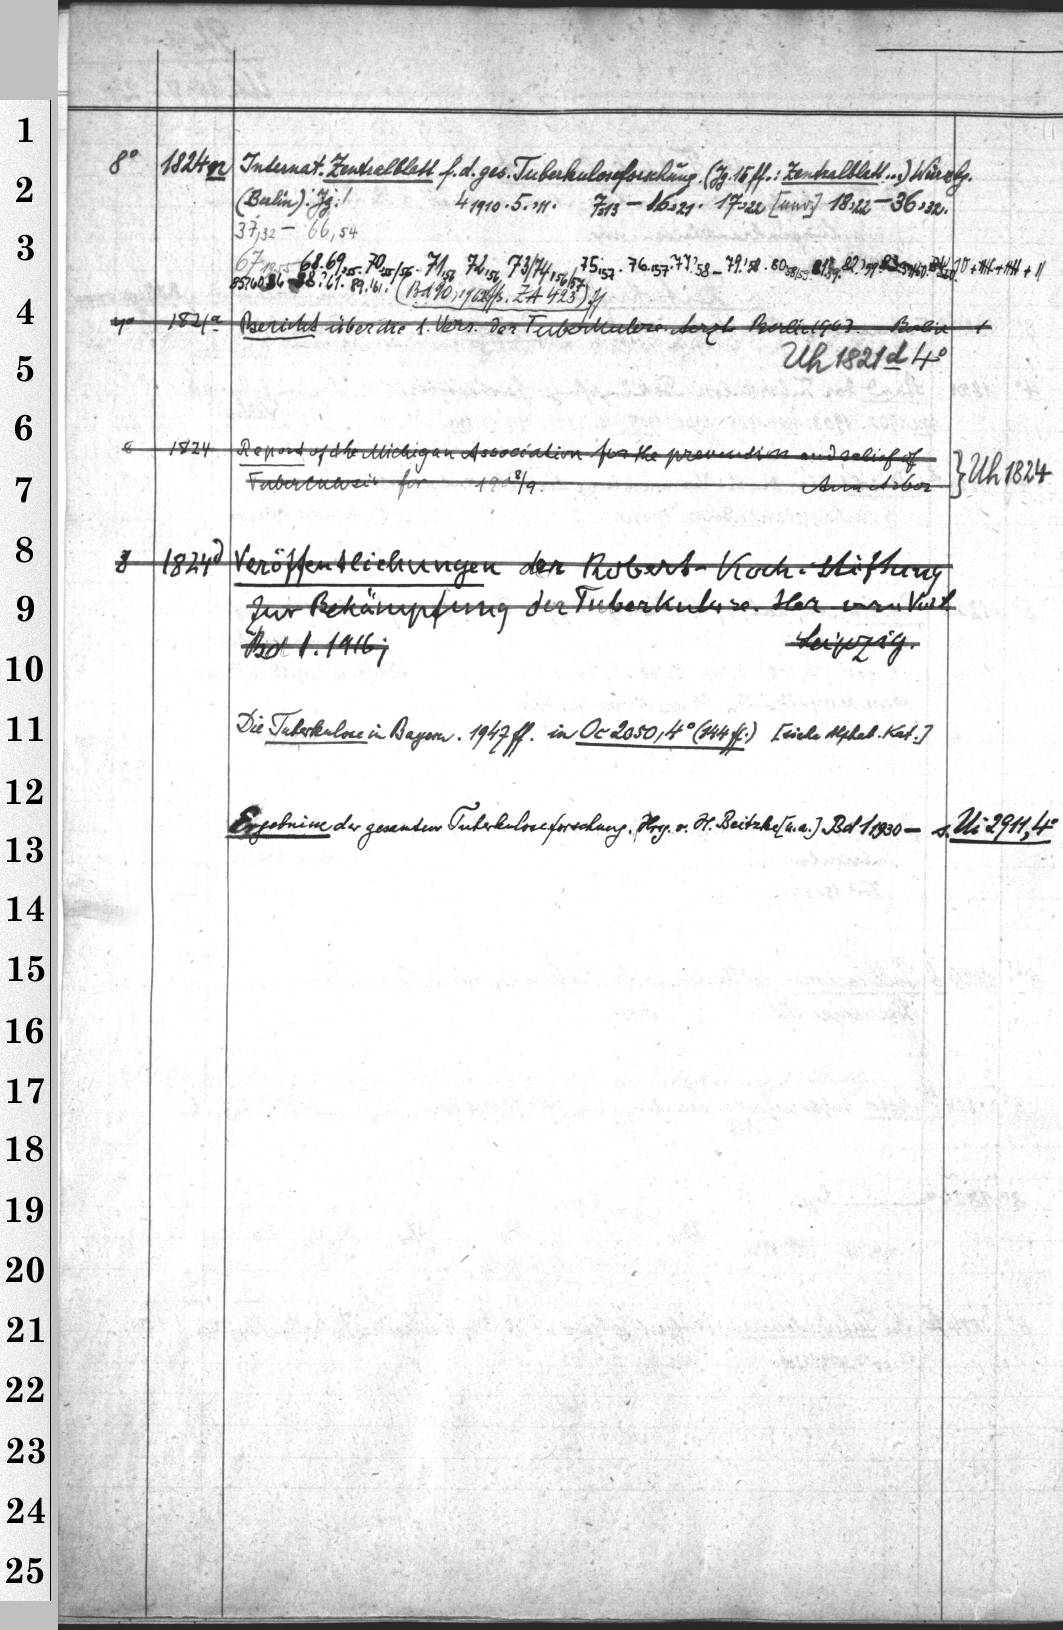 1
8° 1824n Internat. Zentralblatt f. d. ges. Tuberkuloseforschung. (Jg. 15 ff.: Zentralblatt...) Würzbg.
2
(Berlin). Jg. 4 1910. 5.,11. 7,13 – 16,21. 17,22 [unv.] 18,22 – 36,32.
37,32 – 66,54
3
67 1955 68. 69,55. 70,55/56. 71,56 72,56 73/74,156/57 75,157. 76,157. 77,'58 – 79,'58. 80,58/59.
85,'60. 86 – 88,'61. 89,'61. (Bd 90, 1962 ff s. ZA 423) ff
4
4° 1821a Bericht über die 1. Vers. der Tuberkulose-Ärzte Berlin 1903. Berlin 1
5
Uh 1821d 4°
6
8 1824 Report of the Michigan Association for the prevention and relief of
7
Tuberculosis for 1908/9. Ann Arbor } Uh 1824
8
8 1824d Veröffentlichungen der Robert-Koch-Stiftung
9
zur Bekämpfung der Tuberkulose. Her
Bd 1. 1916; Leipzig.
10
11
Die Tuberkulose in Bayern. 1947 ff. in Oc 2050, 4° (344 ff.) [siehe Alphab. Kat.]
12
13
Ergebnisse der gesamten Tuberkuloseforschung. Hrsg. v. H. Beitzke [u.a.] Bd 1 1930 – s. Ui 2911, 4°
14
15
16
17
18
19
20
21
22
23
24
25